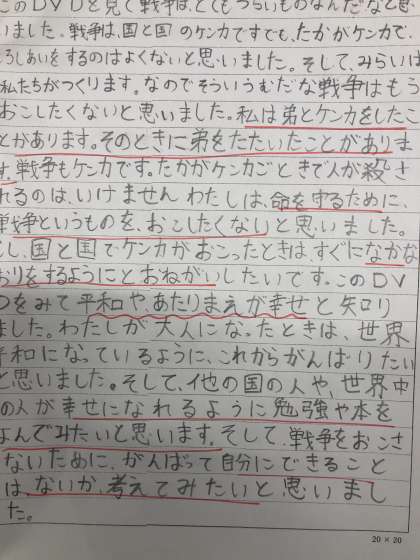 このDVDを見て戦争は、とてもつらいものなんだなと思
いました。戦争は、国と国のケンカですでも、たかがケンカで、
ろしあいをするのはよくないと思いました。そして、みらいは
私たちがつくります。なのでそういうむだな戦争はもう
おこしたくないと思いました。私は弟とケンカをしたこ
とがあります。そのときに弟をたたいたことがありま
す。戦争もケンカです。たかがケンカごときで人が殺さ
れるのは、いけませんわたしは、命を守るために、
戦争というものを、おこしたくないと思いました。
もし、国と国でケンカがおこったときは、すぐになかな
おりをするようにとおねがいしたいです。このDV
Dをみて平和や、あたりまえが幸せと知り
ました。わたしが大人になったときは、世界
平和になっているように、これからがんばりたい
と思いました。そして、他の国の人や、世界中
の人が幸せになれるように勉強や本を
よんでみたいと思います。そして、戦争をおこさ
ないために、がんばって自分にできること
は、ないか、考えてみたいと、思いまし
た。
20×20